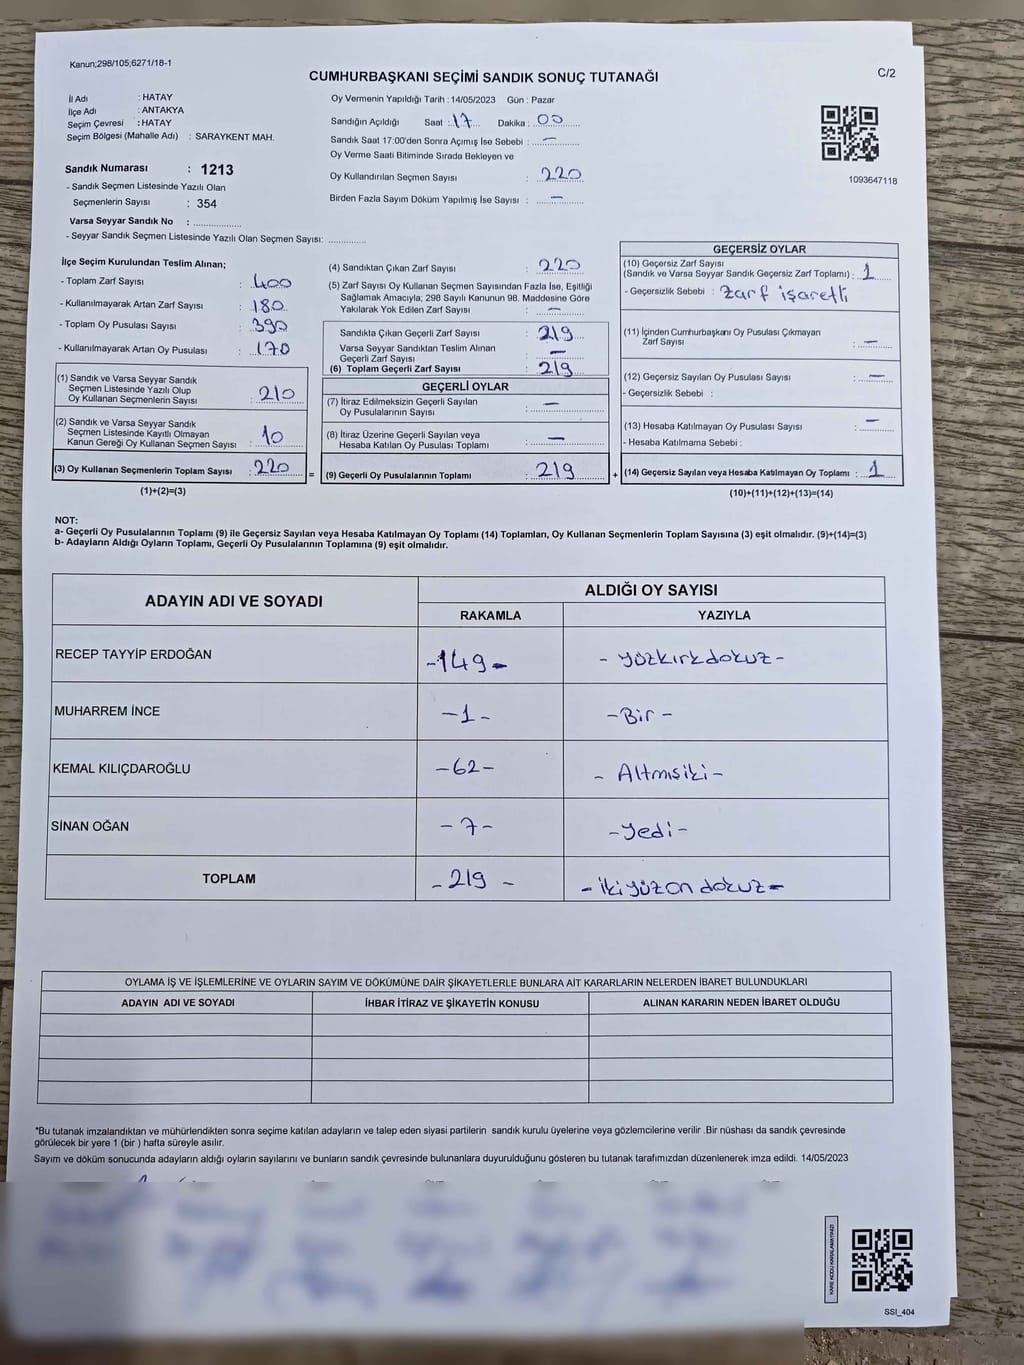 Kanun;298/105;6271/18-1
CUMHURBAŞKANI SEÇİMİ SANDIK SONUÇ TUTANAĞI
C/2
İl Adı : HATAY
İlçe Adı : ANTAKYA
Seçim Çevresi : HATAY
Seçim Bölgesi (Mahalle Adı) : SARAYKENT MAH.
Sandık Numarası : 1213
- Sandık Seçmen Listesinde Yazılı Olan
Seçmenlerin Sayısı : 354
Varsa Seyyar Sandık No : ..................
- Seyyar Sandık Seçmen Listesinde Yazılı Olan Seçmen Sayısı: ..............
Oy Vermenin Yapıldığı Tarih : 14/05/2023 Gün : Pazar
Sandığın Açıldığı Saat : 17 Dakika : 00
Sandık Saat 17:00'den Sonra Açımış İse Sebebi : —
Oy Verme Saati Bitiminde Sırada Bekleyen ve
Oy Kullandırılan Seçmen Sayısı : 220
Birden Fazla Sayım Döküm Yapılmış İse Sayısı : —
1093647118
İlçe Seçim Kurulundan Teslim Alınan;
- Toplam Zarf Sayısı : 400
- Kullanılmayarak Artan Zarf Sayısı : 180
- Toplam Oy Pusulası Sayısı : 390
- Kullanılmayarak Artan Oy Pusulası : 170
(1) Sandık ve Varsa Seyyar Sandık
Seçmen Listesinde Yazılı Olup
Oy Kullanan Seçmenlerin Sayısı : 210
(2) Sandık ve Varsa Seyyar Sandık
Seçmen Listesinde Kayıtlı Olmayan
Kanun Gereği Oy Kullanan Seçmen Sayısı : 10
(3) Oy Kullanan Seçmenlerin Toplam Sayısı : 220 =
(1)+(2)=(3)
(4) Sandıktan Çıkan Zarf Sayısı : 220
(5) Zarf Sayısı Oy Kullanan Seçmen Sayısından Fazla İse, Eşitliği
Sağlamak Amacıyla; 298 Sayılı Kanunun 98. Maddesine Göre
Yakılarak Yok Edilen Zarf Sayısı : —
Sandıkta Çıkan Geçerli Zarf Sayısı : 219
Varsa Seyyar Sandıktan Teslim Alınan
Geçerli Zarf Sayısı : —
(6) Toplam Geçerli Zarf Sayısı : 219
GEÇERLİ OYLAR
(7) İtiraz Edilmeksizin Geçerli Sayılan
Oy Pusulalarının Sayısı : —
(8) İtiraz Üzerine Geçerli Sayılan veya
Hesaba Katılan Oy Pusulaları Toplamı : —
(9) Geçerli Oy Pusulalarının Toplamı : 219 +
GEÇERSİZ OYLAR
(10) Geçersiz Zarf Sayısı
(Sandık ve Varsa Seyyar Sandık Geçersiz Zarf Toplamı) : 1
- Geçersizlik Sebebi : Zarf işaretli
(11) İçinden Cumhurbaşkanı Oy Pusulası Çıkmayan
Zarf Sayısı : —
(12) Geçersiz Sayılan Oy Pusulası Sayısı : —
- Geçersizlik Sebebi :
(13) Hesaba Katılmayan Oy Pusulası Sayısı : —
- Hesaba Katılmama Sebebi :
(14) Geçersiz Sayılan veya Hesaba Katılmayan Oy Toplamı : 1
(10)+(11)+(12)+(13)=(14)
NOT:
a- Geçerli Oy Pusulalarının Toplamı (9) ile Geçersiz Sayılan veya Hesaba Katılmayan Oy Toplamı (14) Toplamları, Oy Kullanan Seçmenlerin Toplam Sayısına (3) eşit olmalıdır. (9)+(14)=(3)
b- Adayların Aldığı Oyların Toplamı, Geçerli Oy Pusulalarının Toplamına (9) eşit olmalıdır.
ADAYIN ADI VE SOYADI
ALDIĞI OY SAYISI
RAKAMLA YAZIYLA
RECEP TAYYİP ERDOĞAN -149- - yüzkırkdokuz -
MUHARREM İNCE -1- - Bir -
KEMAL KILIÇDAROĞLU -62- - Altmışiki -
SİNAN OĞAN -7- - yedi -
TOPLAM -219- - ikiyüzondokuz -
OYLAMA İŞ VE İŞLEMLERİNE VE OYLARIN SAYIM VE DÖKÜMÜNE DAİR ŞİKAYETLERLE BUNLARA AİT KARARLARIN NELERDEN İBARET BULUNDUKLARI
ADAYIN ADI VE SOYADI İHBAR İTİRAZ VE ŞİKAYETİN KONUSU ALINAN KARARIN NEDEN İBARET OLDUĞU
*Bu tutanak imzalandıktan ve mühürlendikten sonra seçime katılan adayların ve talep eden siyasi partilerin sandık kurulu üyelerine veya gözlemcilerine verilir .Bir nüshası da sandık çevresinde
görülecek bir yere 1 (bir ) hafta süreyle asılır.
Sayım ve döküm sonucunda adayların aldığı oyların sayılarını ve bunların sandık çevresinde bulunanlara duyurulduğunu gösteren bu tutanak tarafımızdan düzenlenerek imza edildi. 14/05/2023
KARE KODU KARALAMAYINIZ!
SSI_404